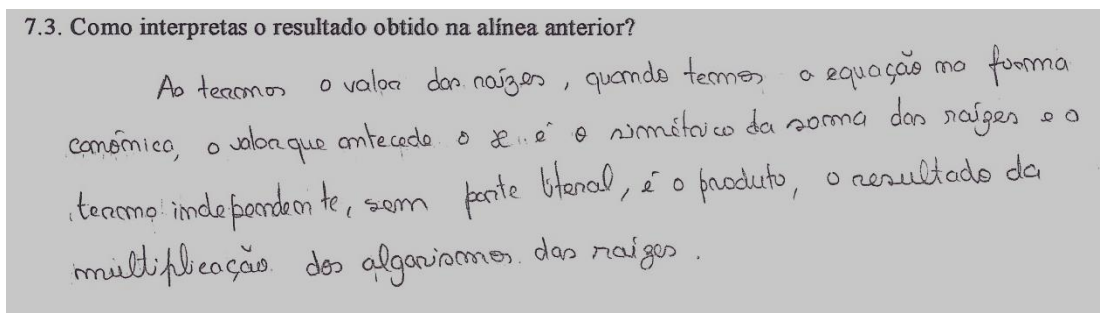 7.3. Como interpretas o resultado obtido na alínea anterior?
Ao termos o valor das raízes, quando temos a equação na forma
canônica, o valor que antecede o x é o simétrico da soma das raízes e o
termo independente, sem parte literal, é o produto, o resultado da
multiplicação dos algarismos das raízes.